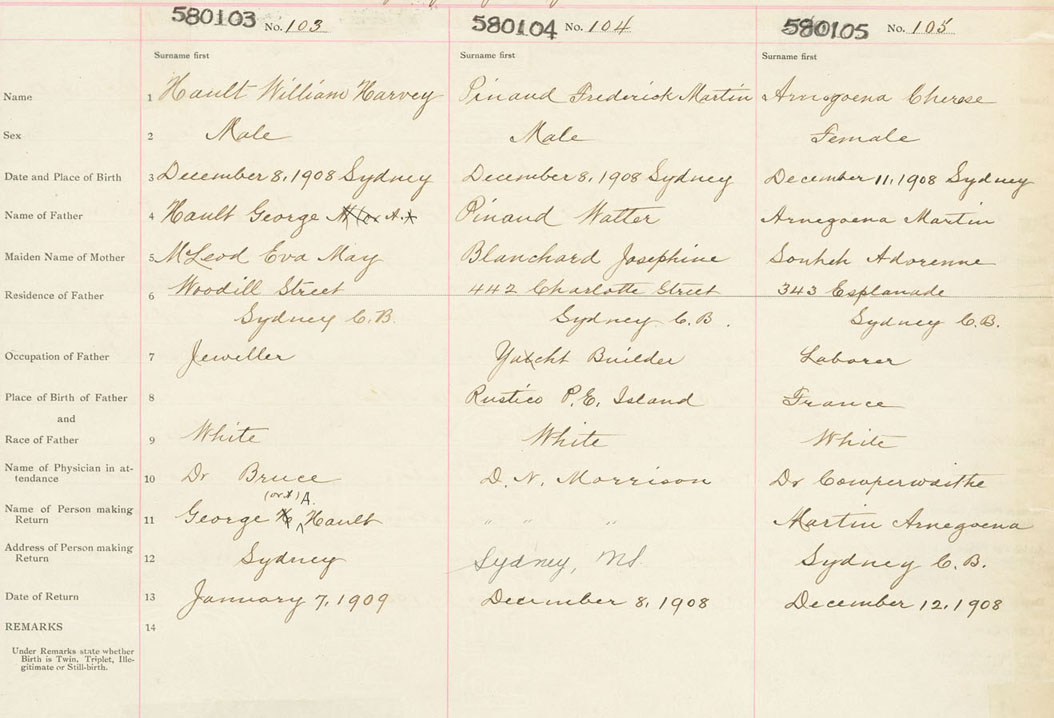 580103 No. 103
580104 No. 104
580105 No. 105
Surname first
Surname first
Surname first
Name 1 Hault William Harvey
Pinaud Frederick Martin
Arnegoena Cherese
Sex 2 Male
Male
Female
Date and Place of Birth 3 December 8, 1908 Sydney
December 8, 1908 Sydney
December 11, 1908 Sydney
Name of Father 4 Hault George A.
Pinaud Walter
Arnegoena Martin
Maiden Name of Mother 5 McLeod Eva May
Blanchard Josephine
Adorenne
Residence of Father 6 Woodill Street
442 Charlotte Street
343 Esplanade
Sydney C.B.
Sydney C.B.
Sydney C.B.
Occupation of Father 7 Jeweller
Yatcht Builder
Laborer
Place of Birth of Father 8
Rustico P.E. Island
France
and
Race of Father 9 White
White
White
Name of Physician in at-
tendance 10 Dr Bruce
D. N. Morrison
Dr Cowperwaithe
(or x) A.
Name of Person making
Return 11 George Hault
" " "
Martin Arnegoena
Address of Person making
Return 12 Sydney
Sydney, NS.
Sydney C.B.
Date of Return 13 January 7, 1909
December 8, 1908
December 12, 1908
REMARKS 14
Under Remarks state whether
Birth is Twin, Triplet, Ille-
gitimate or Still-birth.